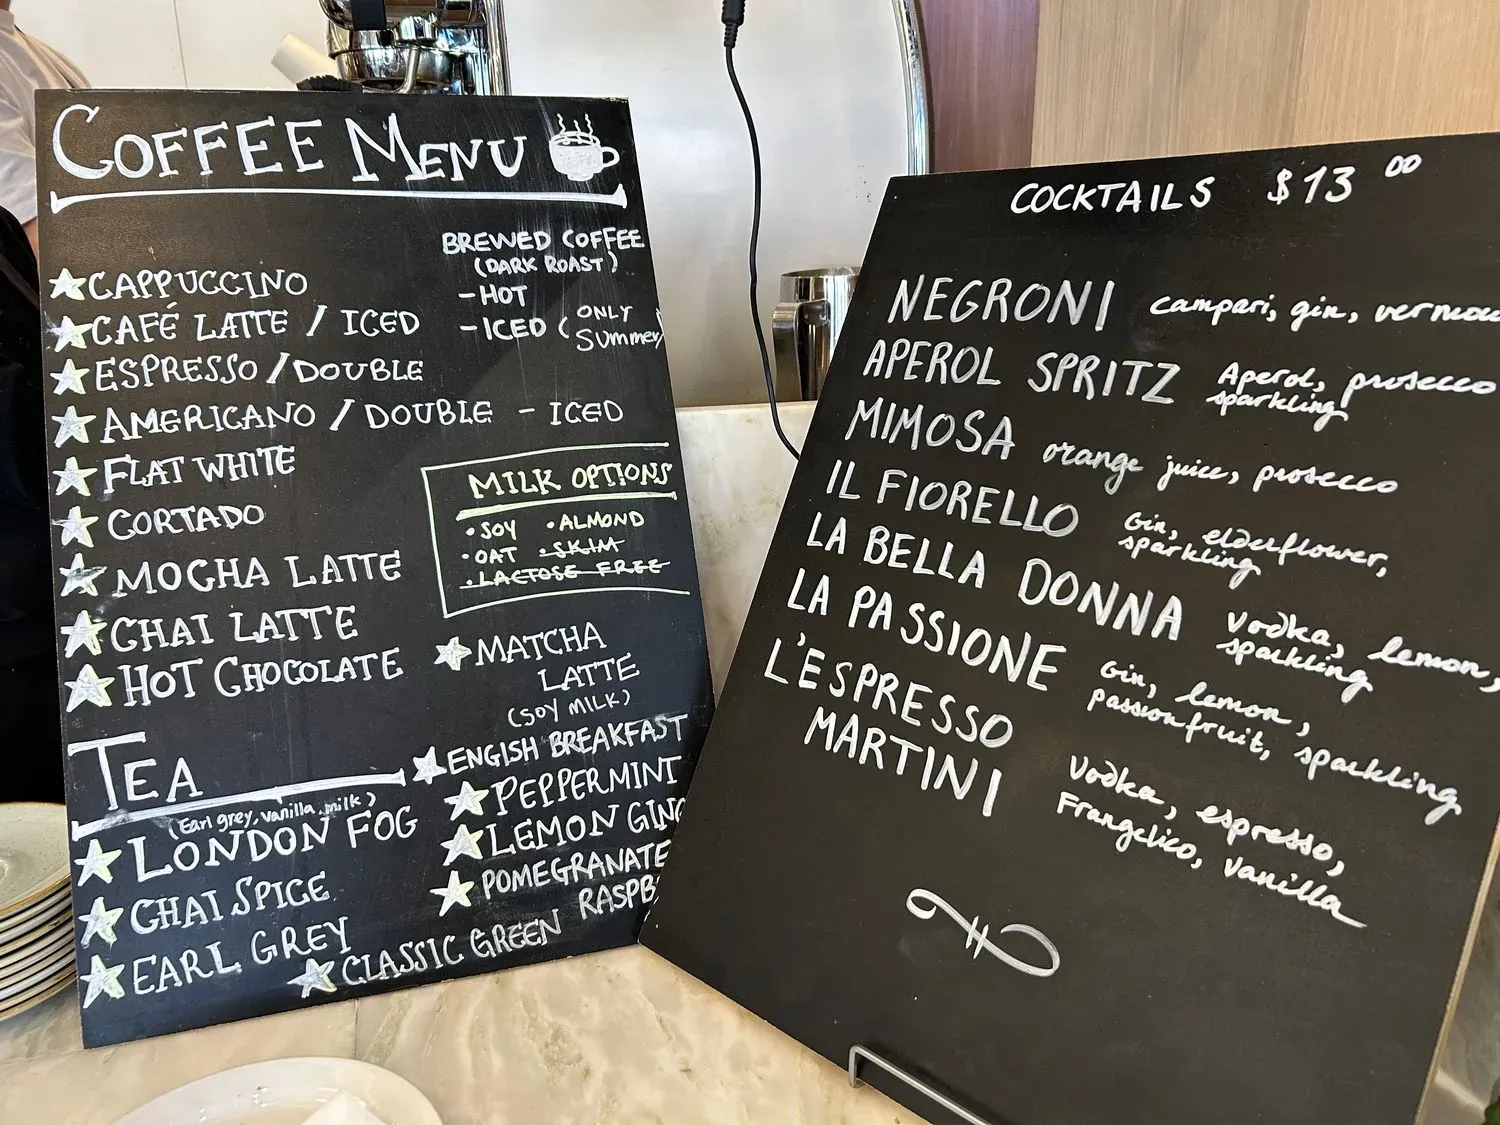 COFFEE MENU
BREWED COFFEE
(DARK ROAST)
- HOT
- ICED (ONLY
Summer)
CAPPUCCINO
CAFÉ LATTE / ICED
ESPRESSO / DOUBLE
AMERICANO / DOUBLE - ICED
FLAT WHITE
CORTADO
MOCHA LATTE
CHAI LATTE
HOT CHOCOLATE
MILK OPTIONS
• SOY • ALMOND
• OAT • SKIM
• LACTOSE FREE
MATCHA
LATTE
(SOY MILK)
TEA
(Earl grey, vanilla, milk)
LONDON FOG
CHAI SPICE
EARL GREY
ENGISH BREAKFAST
PEPPERMINT
LEMON GING
POMEGRANATE
RASPB
CLASSIC GREEN
COCKTAILS $13 00
NEGRONI campari, gin, vermou
APEROL SPRITZ Aperol, prosecco
sparkling
MIMOSA orange juice, prosecco
IL FIORELLO Gin, elderflower,
sparkling
LA BELLA DONNA vodka, lemon,
sparkling
LA PASSIONE Gin, lemon,
passionfruit, sparkling
L'ESPRESSO
MARTINI vodka, espresso,
Frangelico, vanilla